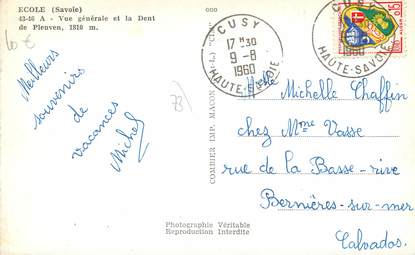 ECOLE (Savoie)
43-46 A - Vue générale et la Dent
de Pleuven, 1810 m.
10 €
Meilleurs
souvenirs
de
vacances
Michel
73
COMBIER IMP. MACON
CUSY
17 H 30
9-8
1960
HAUTE-SAVOIE
1960
HAUTE-SAVOIE
0,15
Melle Michelle Chaffin
chez Mme Vasse
rue de la Basse-rive
Bernières-sur-mer
Calvados.
Photographie Véritable
Reproduction Interdite